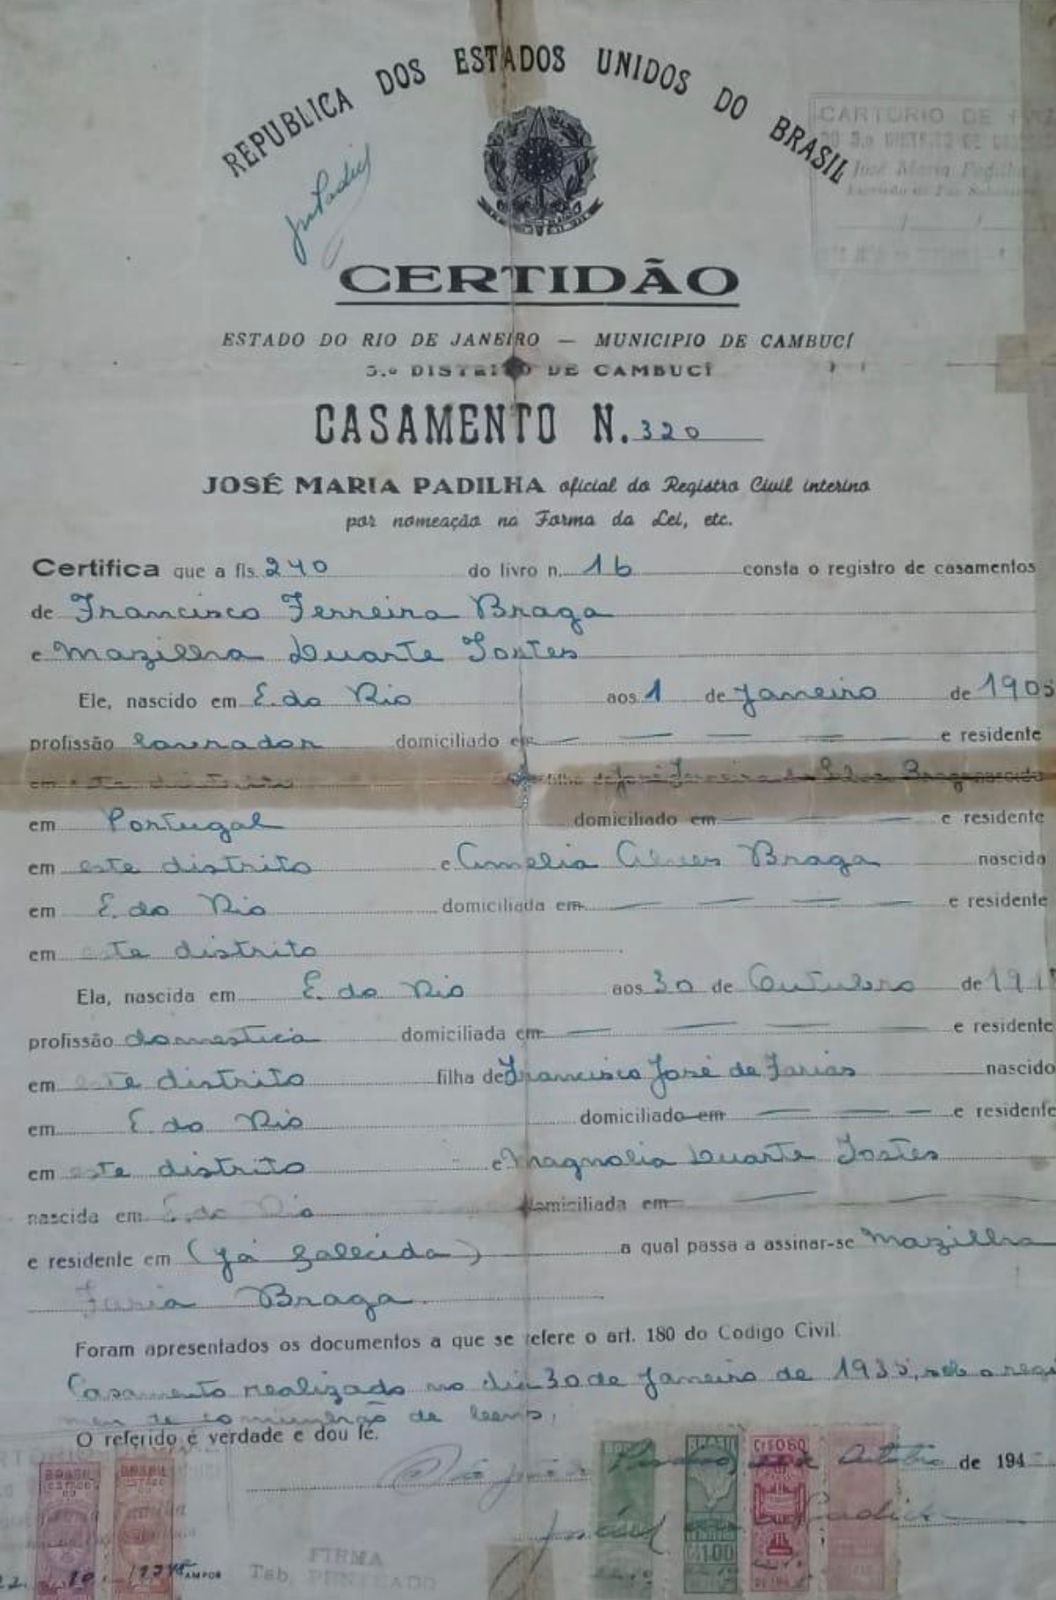 REPUBLICA DOS ESTADOS UNIDOS DO BRASIL
CARTORIO DE
José Maria Padilha
CERTIDÃO
ESTADO DO RIO DE JANEIRO — MUNICIPIO DE CAMBUCÍ
3.º DISTRITO DE CAMBUCÍ
CASAMENTO N. 320
JOSÉ MARIA PADILHA oficial do Registro Civil interino
por nomeação na Forma da Lei, etc.
Certifica que a fls. 240 do livro n. 16 consta o registro de casamentos
de Francisco Ferreira Braga
e Mazilha Duarte Tostes
Ele, nascido em E. do Rio aos 1 de Janeiro de 1905
profissão lavrador domiciliado em — — — — — e residente
em este distrito filho de José Ferreira da Silva Braga nascido
em Portugal domiciliado em — — — e residente
em este distrito e Amelia Alves Braga nascida
em E. do Rio domiciliada em — — — — e residente
em este distrito
Ela, nascida em E. do Rio aos 30 de Outubro de 191
profissão domestica domiciliada em — — — — e residente
em este distrito filha de Francisco José de Farias nascido
em E. do Rio domiciliado em — — — e residente
em este distrito e Magnolia Duarte Tostes
nascida em E. do Rio domiciliada em — —
e residente em (já falecida) a qual passa a assinar-se Mazilha
Faria Braga.
Foram apresentados os documentos a que se refere o art. 180 do Codigo Civil.
Casamento realizado no dia 30 de Janeiro de 1935, sob o regi
men de comunhão de bens.
O referido é verdade e dou fé.
de Outubro de 194
BRASIL
BRASIL
BRASIL
CR$0,60
1,00
FIRMA
Tab. PENTEADO